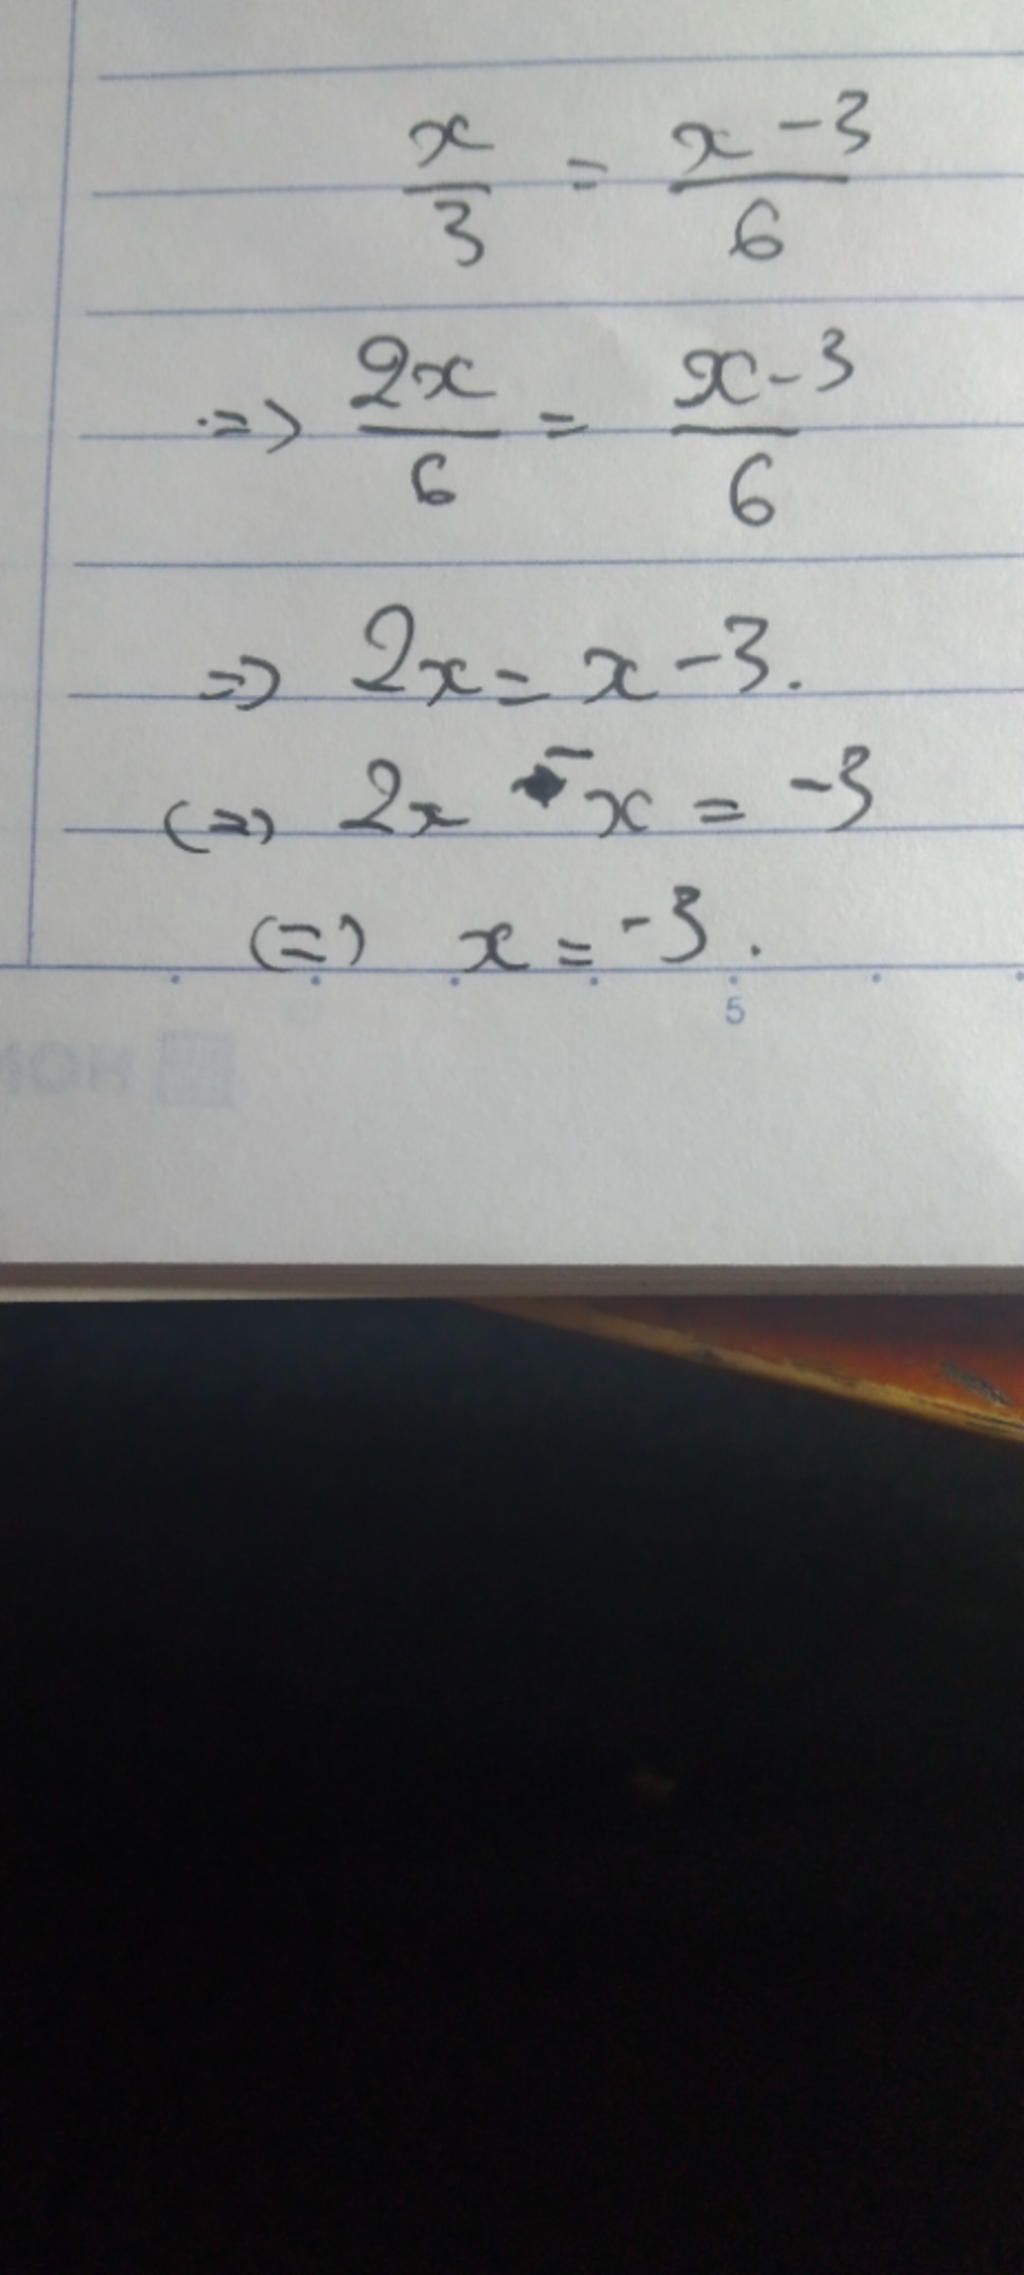 x/3 = x-3/6
=> 2x/6 = x-3/6
=> 2x = x-3.
(=) 2x - x = -3
(=) x = -3.
5